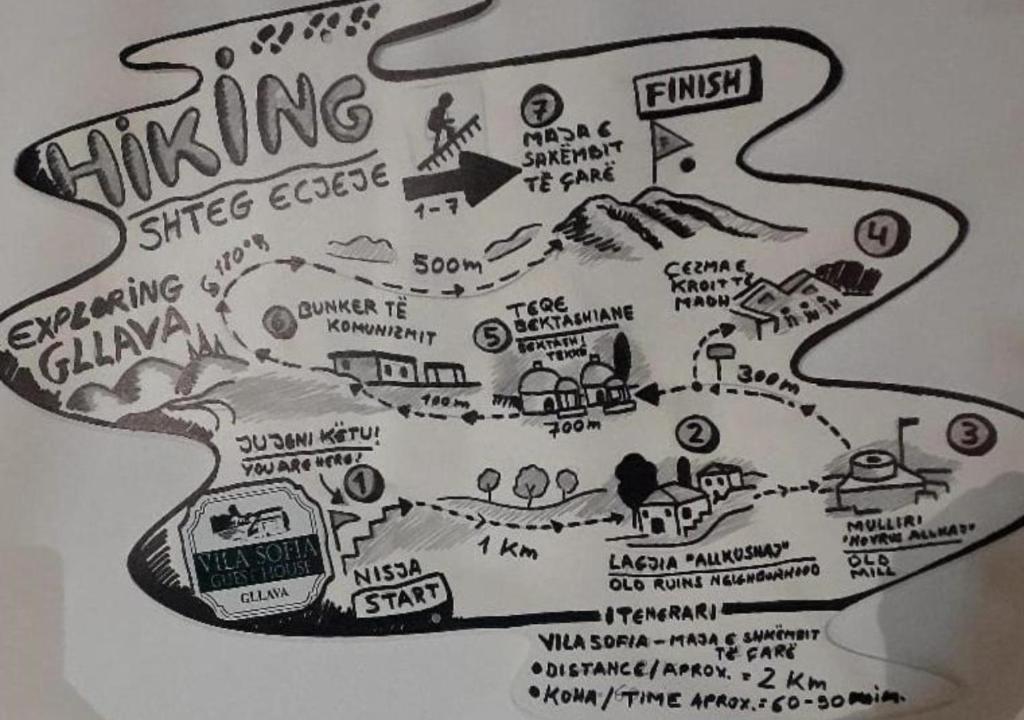 HiKiNG
SHTEG ECJEJE
1-7
7
MAJA E
SHKËMBIT
TË ÇARË
FINISH
EXPLORING
GLLAVA
180°
500m
4
ÇEZMA E
KROIT TË
MADH
6
BUNKER TË
KOMUNIZMIT
100m
5
TEQE
BEKTASHIANE
BEKTASHI
TEKKE
700m
300m
JU JENI KËTU!
YOU ARE HERE!
1
VILA SOFIA
GUEST HOUSE
GLLAVA
NISJA
START
1 Km
2
LAGJIA "ALLKUSHAJ"
OLD RUINS NEIGHBOURHOOD
3
MULLIRI
OLD
MILL
ITENERARI
VILA SOFIA - MAJA E SHKËMBIT
TË ÇARË
• DISTANCE / APROX. = 2 Km
• KOHA / TIME APROX.: = 60-90 min.